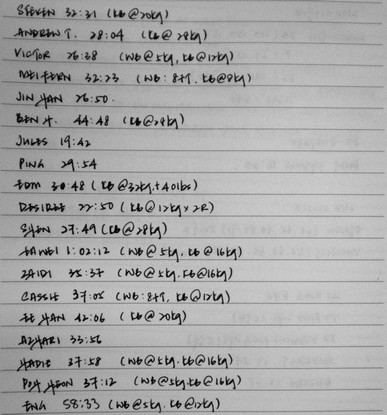 STEVEN 32:31 (KB@20kg)
ANDREW T. 28:04 (KB@28kg)
VICTOR 26:38 (WB@5kg, KB@12kg)
MEI FERN 32:23 (WB: 8ft, KB@8kg)
JIN HAN 26:50.
BEN H. 44:48 (KB@28kg)
JULES 19:42
PING 29:54
EDM 30:48 (KB@32kg, +40lbs)
DESIREE 22:50 (KB@12kg x 2R)
SHEN 27:49 (KB@28kg)
EAWEI 1:02:12 (WB@5kg, KB@16kg)
ZAIDI 35:37 (WB@5kg, KB@16kg)
CASSIE 37:05 (WB: 8ft, KB@12kg)
EE HAN 42:06 (KB@20kg)
AZHARI 33:56
HADIE 37:58 (WB@5kg, KB@16kg)
POH HEON 37:12 (WB@5kg, KB@16kg)
ENG 58:33 (WB@5kg, KB@12kg)